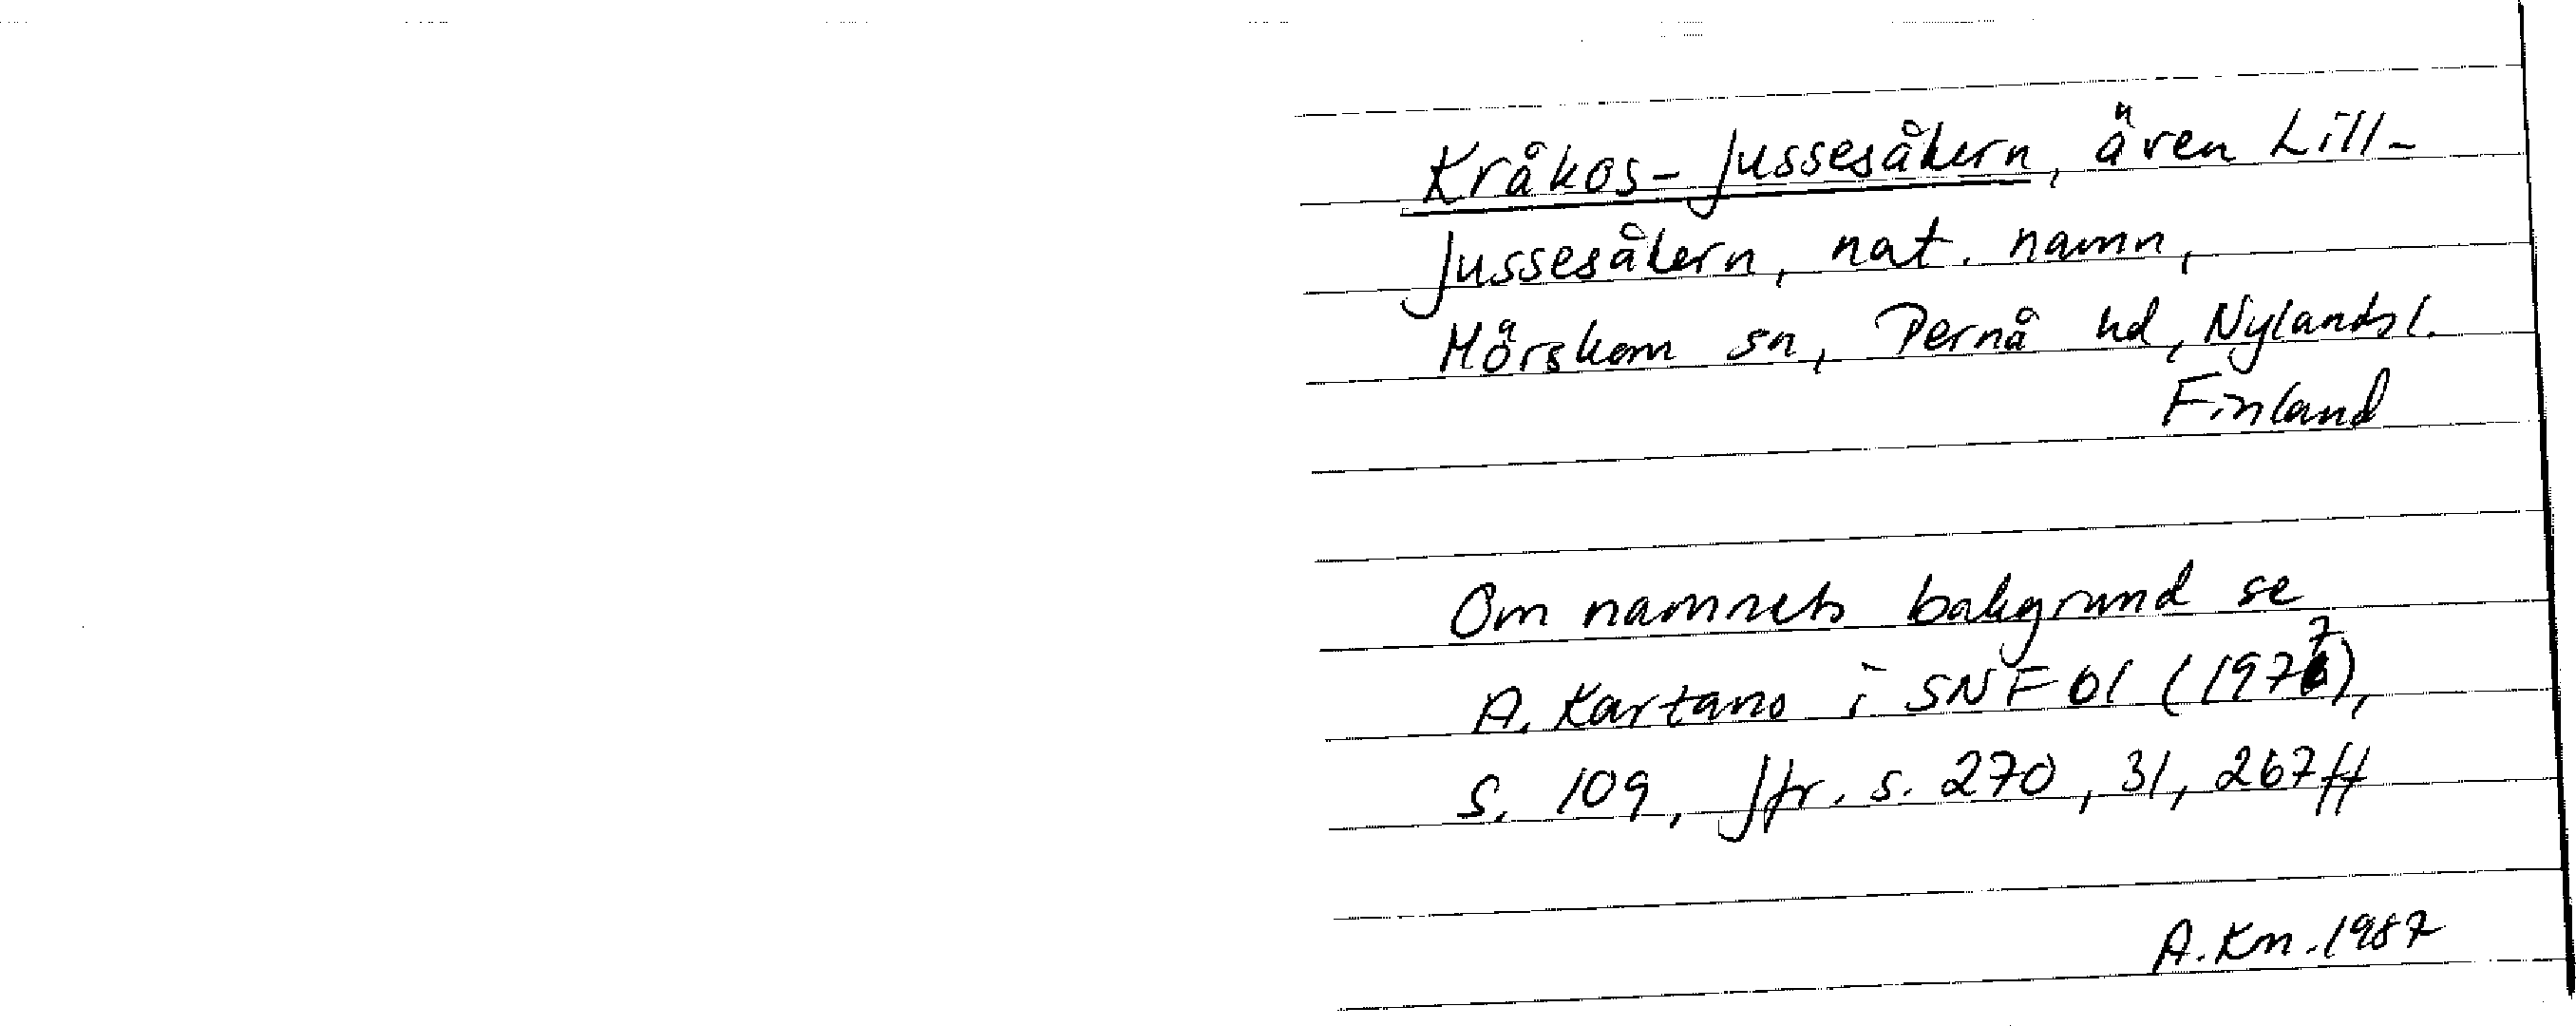 Kråkos-Jussesåkern, även Lill-
Jussesåkern, nat. namn,
Mörskom sn, Pernå hd, Nylands l.
Finland
Om namnets bakgrund se
A. Kartano i SNF 61 (1977),
s. 109, Jfr. s. 270, 31, 267 ff
A. Km. 1987